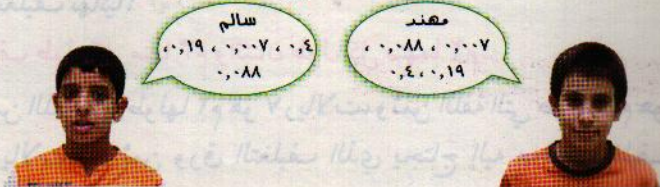 مهند
٠,٠٠٧ ، ٠,٠٨٨ ،
٠,١٩ ، ٠,٤
سالم
٠,٤ ، ٠,٠٠٧ ، ٠,١٩ ،
٠,٠٨٨